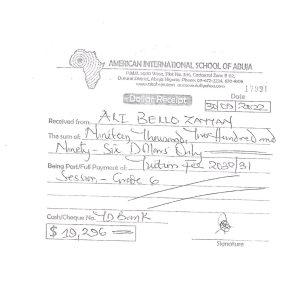 AMERICAN INTERNATIONAL SCHOOL OF ABUJA
Dollar Receipt
Date
Received from: ALI BELLO
The sum of: Nineteen Thousand, Two Hundred and
Ninety-Six Dollars Only
Being Part/Full Payment of: Tuition fee
Session - Grade 6
Cash/Cheque No. TD Bank
$ 19,296
Signature